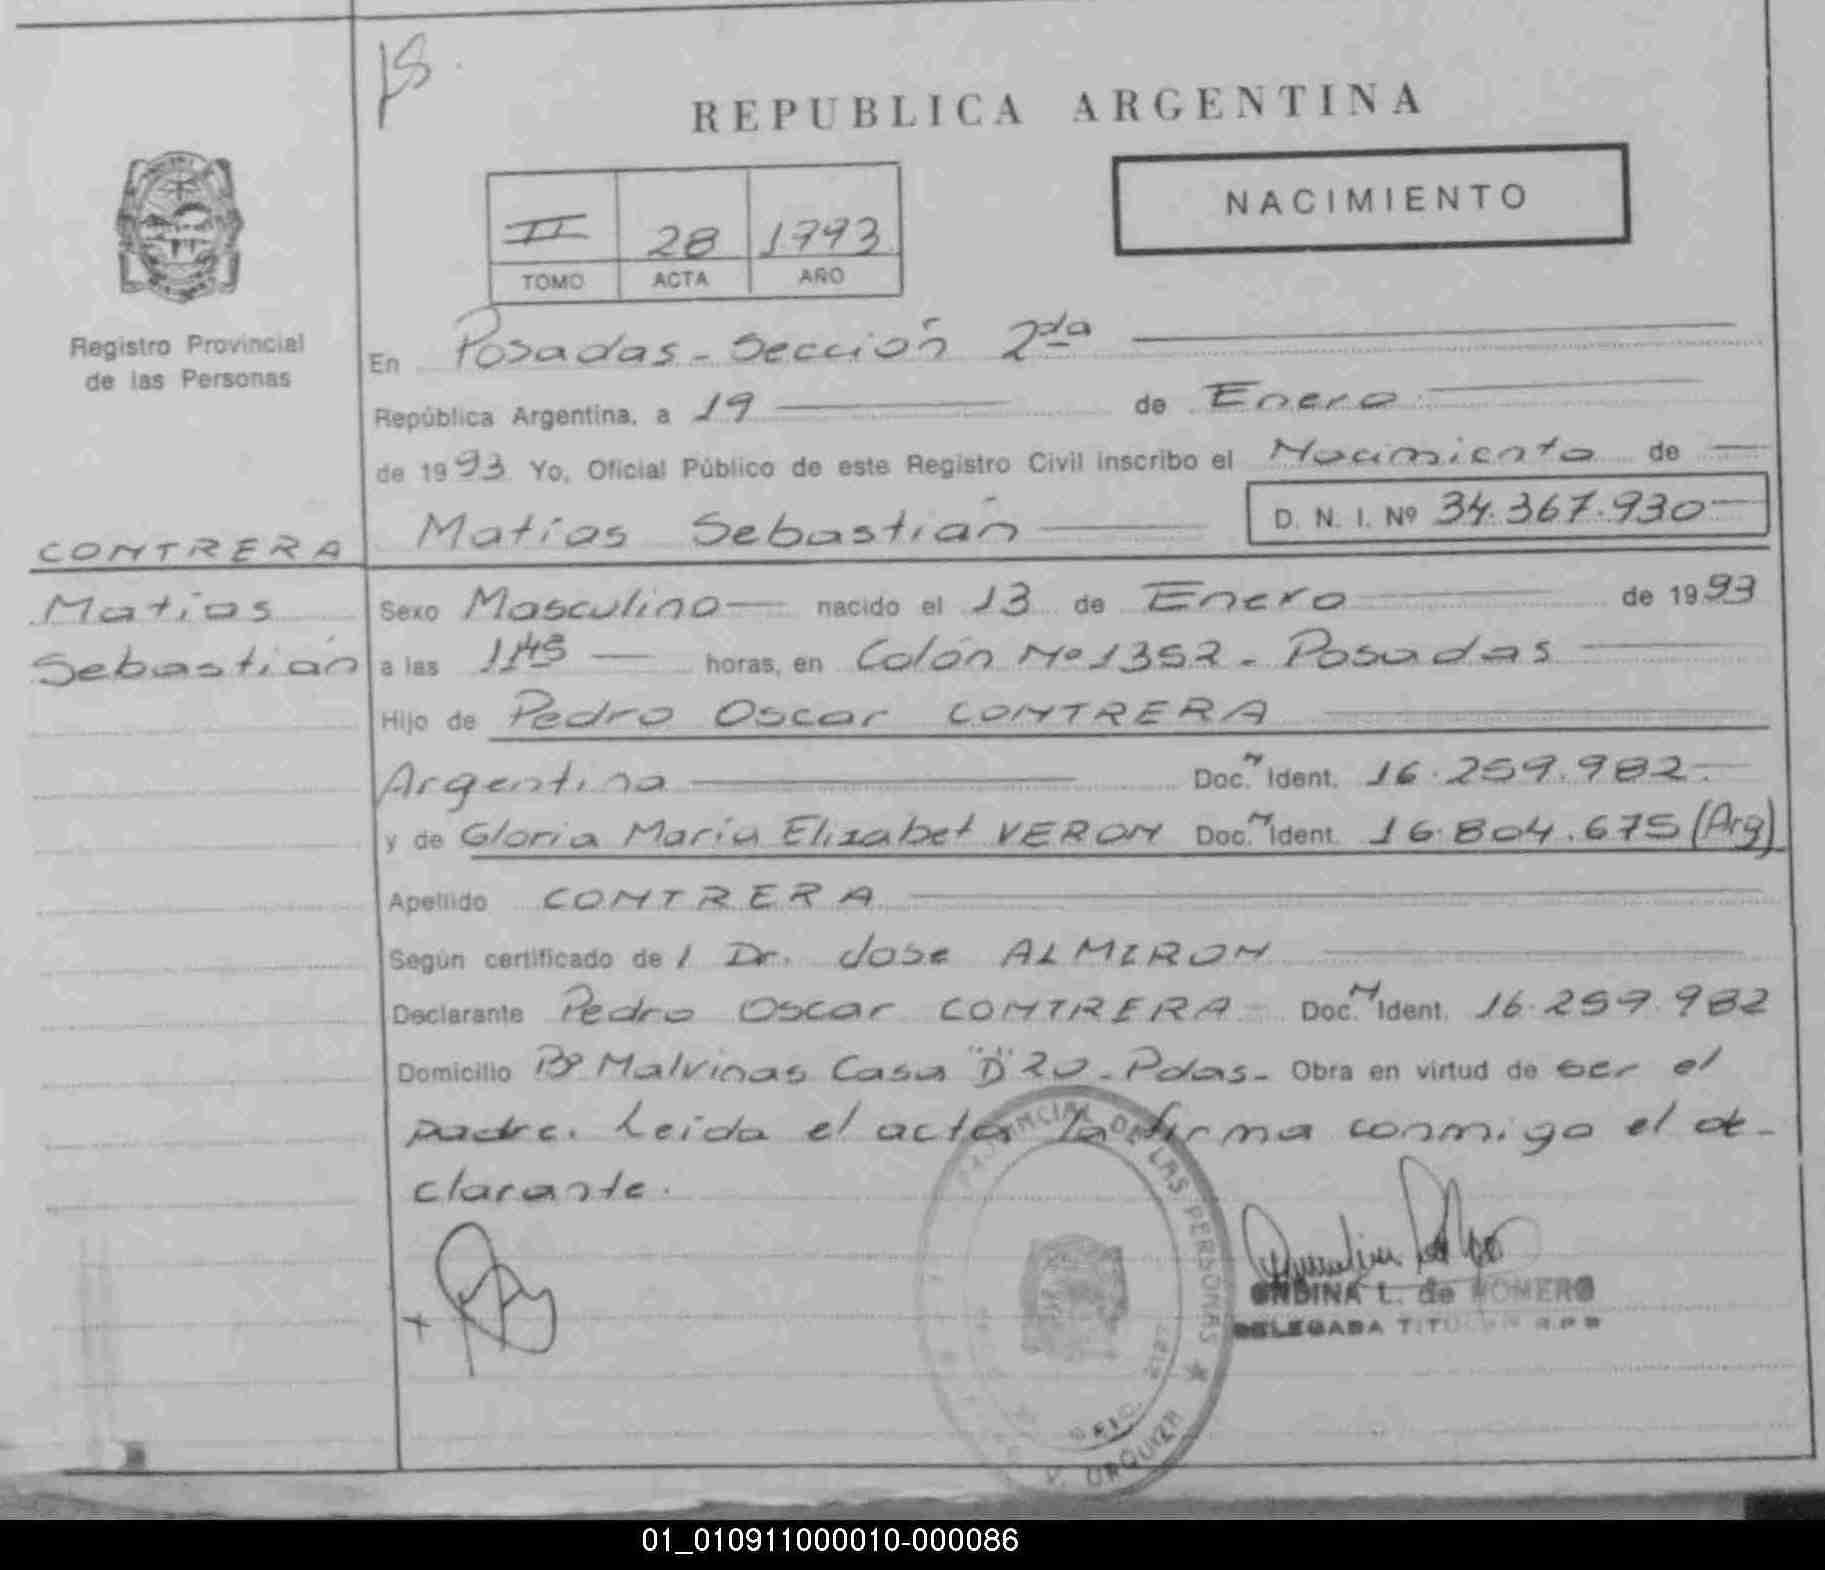 REPUBLICA ARGENTINA
NACIMIENTO
II 28 1993
TOMO ACTA AÑO
Registro Provincial
de las Personas
En Posadas - Sección 2da
República Argentina, a 19 de Enero
de 1993 Yo, Oficial Público de este Registro Civil inscribo el Nacimiento de
Matías Sebastián D. N. I. Nº 34.367.930
CONTRERA
Matías
Sebastián
Sexo Masculino nacido el 13 de Enero de 1993
a las 1145 horas, en Colón Nº 1352 - Posadas
Hijo de Pedro Oscar CONTRERA
Argentina Doc. N Ident. 16.259.982
y de Gloria María Elizabet VERON Doc. N Ident. 16.804.675 (Arg)
Apellido CONTRERA
Según certificado de l Dr. Jose ALMIRON
Declarante Pedro Oscar CONTRERA Doc. N Ident. 16.259.982
Domicilio Bº Malvinas Casa "D" 20 - Pdas - Obra en virtud de ser el
padre. Leida el acta la firma conmigo el de-
clarante.
PROVINCIAL DE LAS PERSONAS
URQUIZA
ONDINA L. de ROMERO
DELEGADA TITULAR R.P.P.
01_010911000010-000086